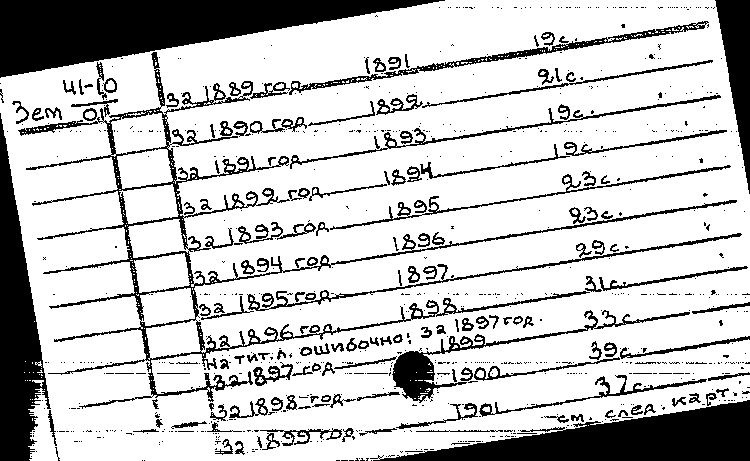 Зем 41-10
01
За 1889 год 1891 19с.
За 1890 год. 1892. 21с.
За 1891 год. 1893. 19с.
За 1892 год. 1894 19с.
За 1893 год. 1895 23с.
За 1894 год. 1896. 23с.
За 1895 год. 1897. 29с.
За 1896 год. 1898. 31с.
На тит. л. ошибочно: За 1897 год.
За 1897 год 1899 33с.
За 1898 год. 1900. 39с.
За 1899 год. 1901 37с.
см. след. карт.